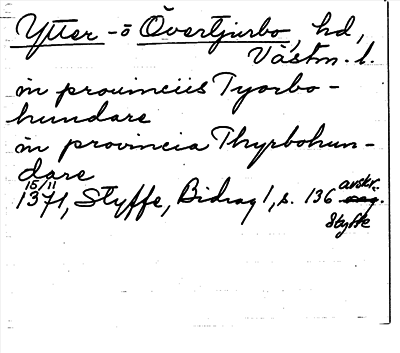 Ytter- o Övertjurbo, hd,
Västm. l.
in prouinciis Tyorbo-
hundare
in provincia Thyrbohun-
dare
15/11
1371, Styffe, Bidrag 1, s. 136 avskr.
Styffe